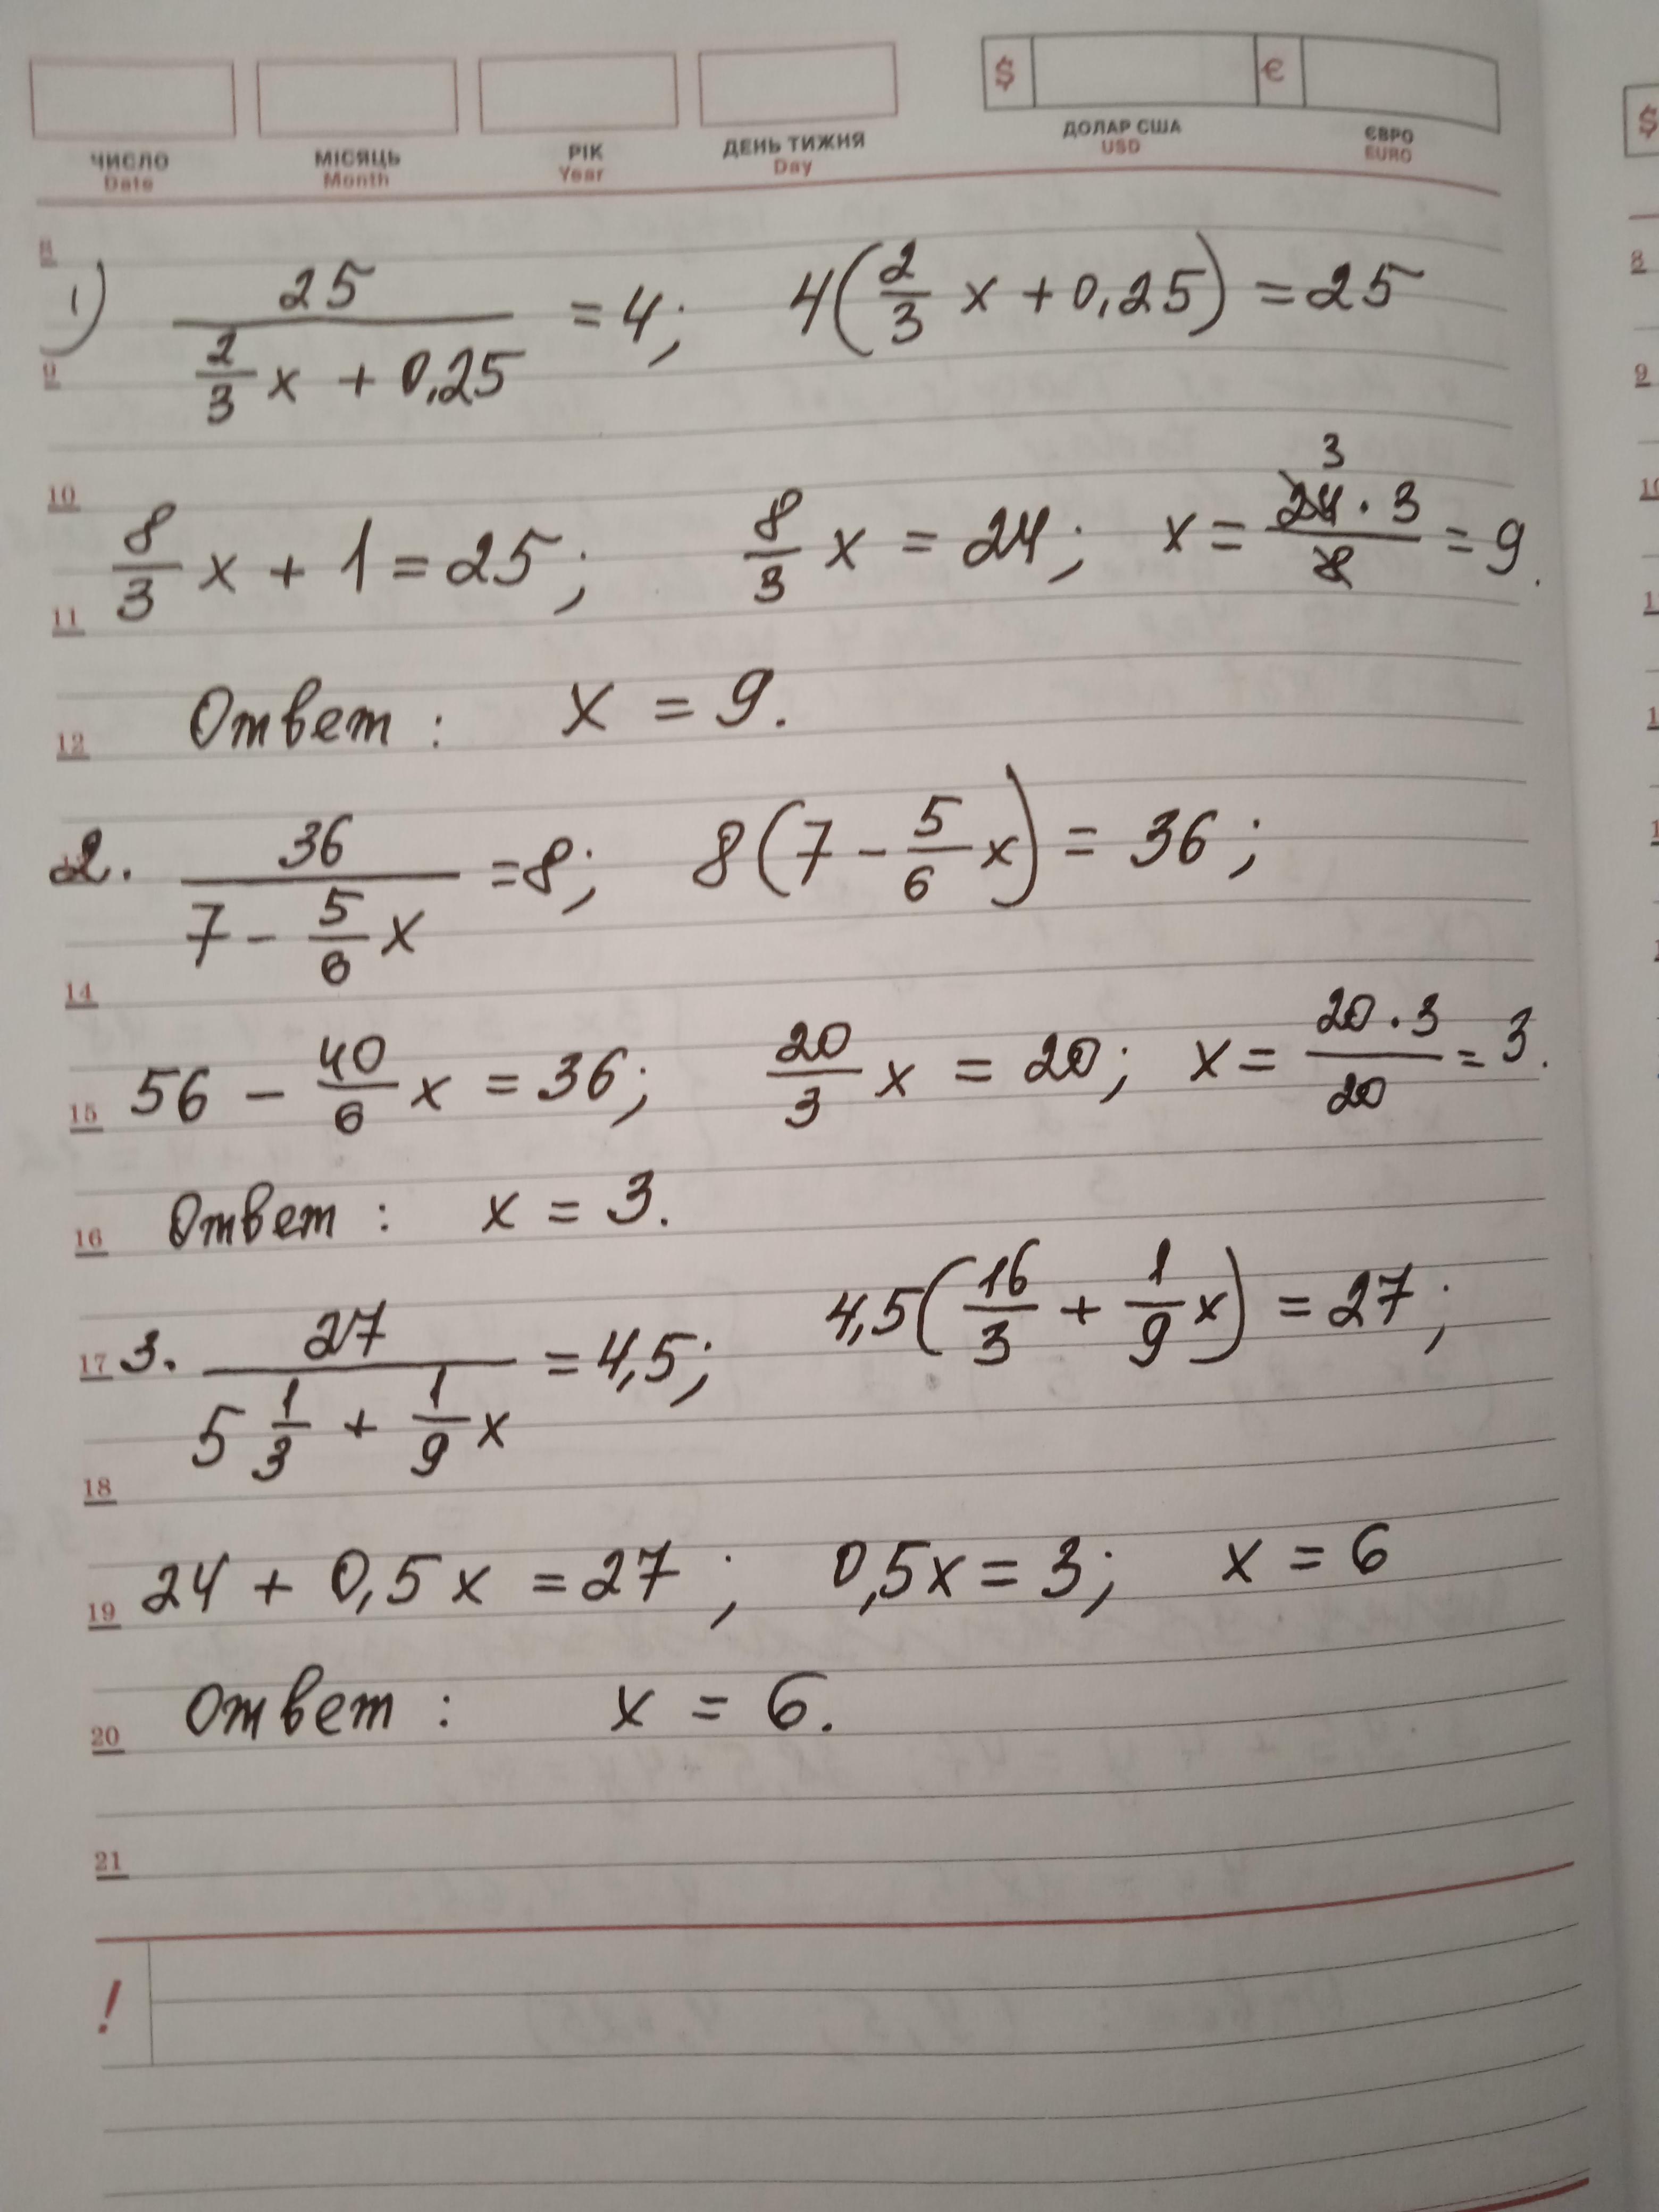 $ € $
ЧИСЛО МІСЯЦЬ РІК ДЕНЬ ТИЖНЯ ДОЛАР США ЄВРО
Date Month Year Day USD EURO
8
1) 25/(2/3 x + 0,25) = 4; 4(2/3 x + 0,25) = 25
9
10
8/3 x + 1 = 25; 8/3 x = 24; x = 24·3/8 = 9.
3
11
Ответ: x = 9.
12
2. 36/(7 - 5/6 x) = 8; 8(7 - 5/6 x) = 36;
14
15 56 - 40/6 x = 36; 20/3 x = 20; x = 20·3/20 = 3.
16 Ответ: x = 3.
17 3. 27/(5 1/3 + 1/9 x) = 4,5; 4,5(16/3 + 1/9 x) = 27;
18
19 24 + 0,5x = 27; 0,5x = 3; x = 6
20 Ответ: x = 6.
21
!
8
9